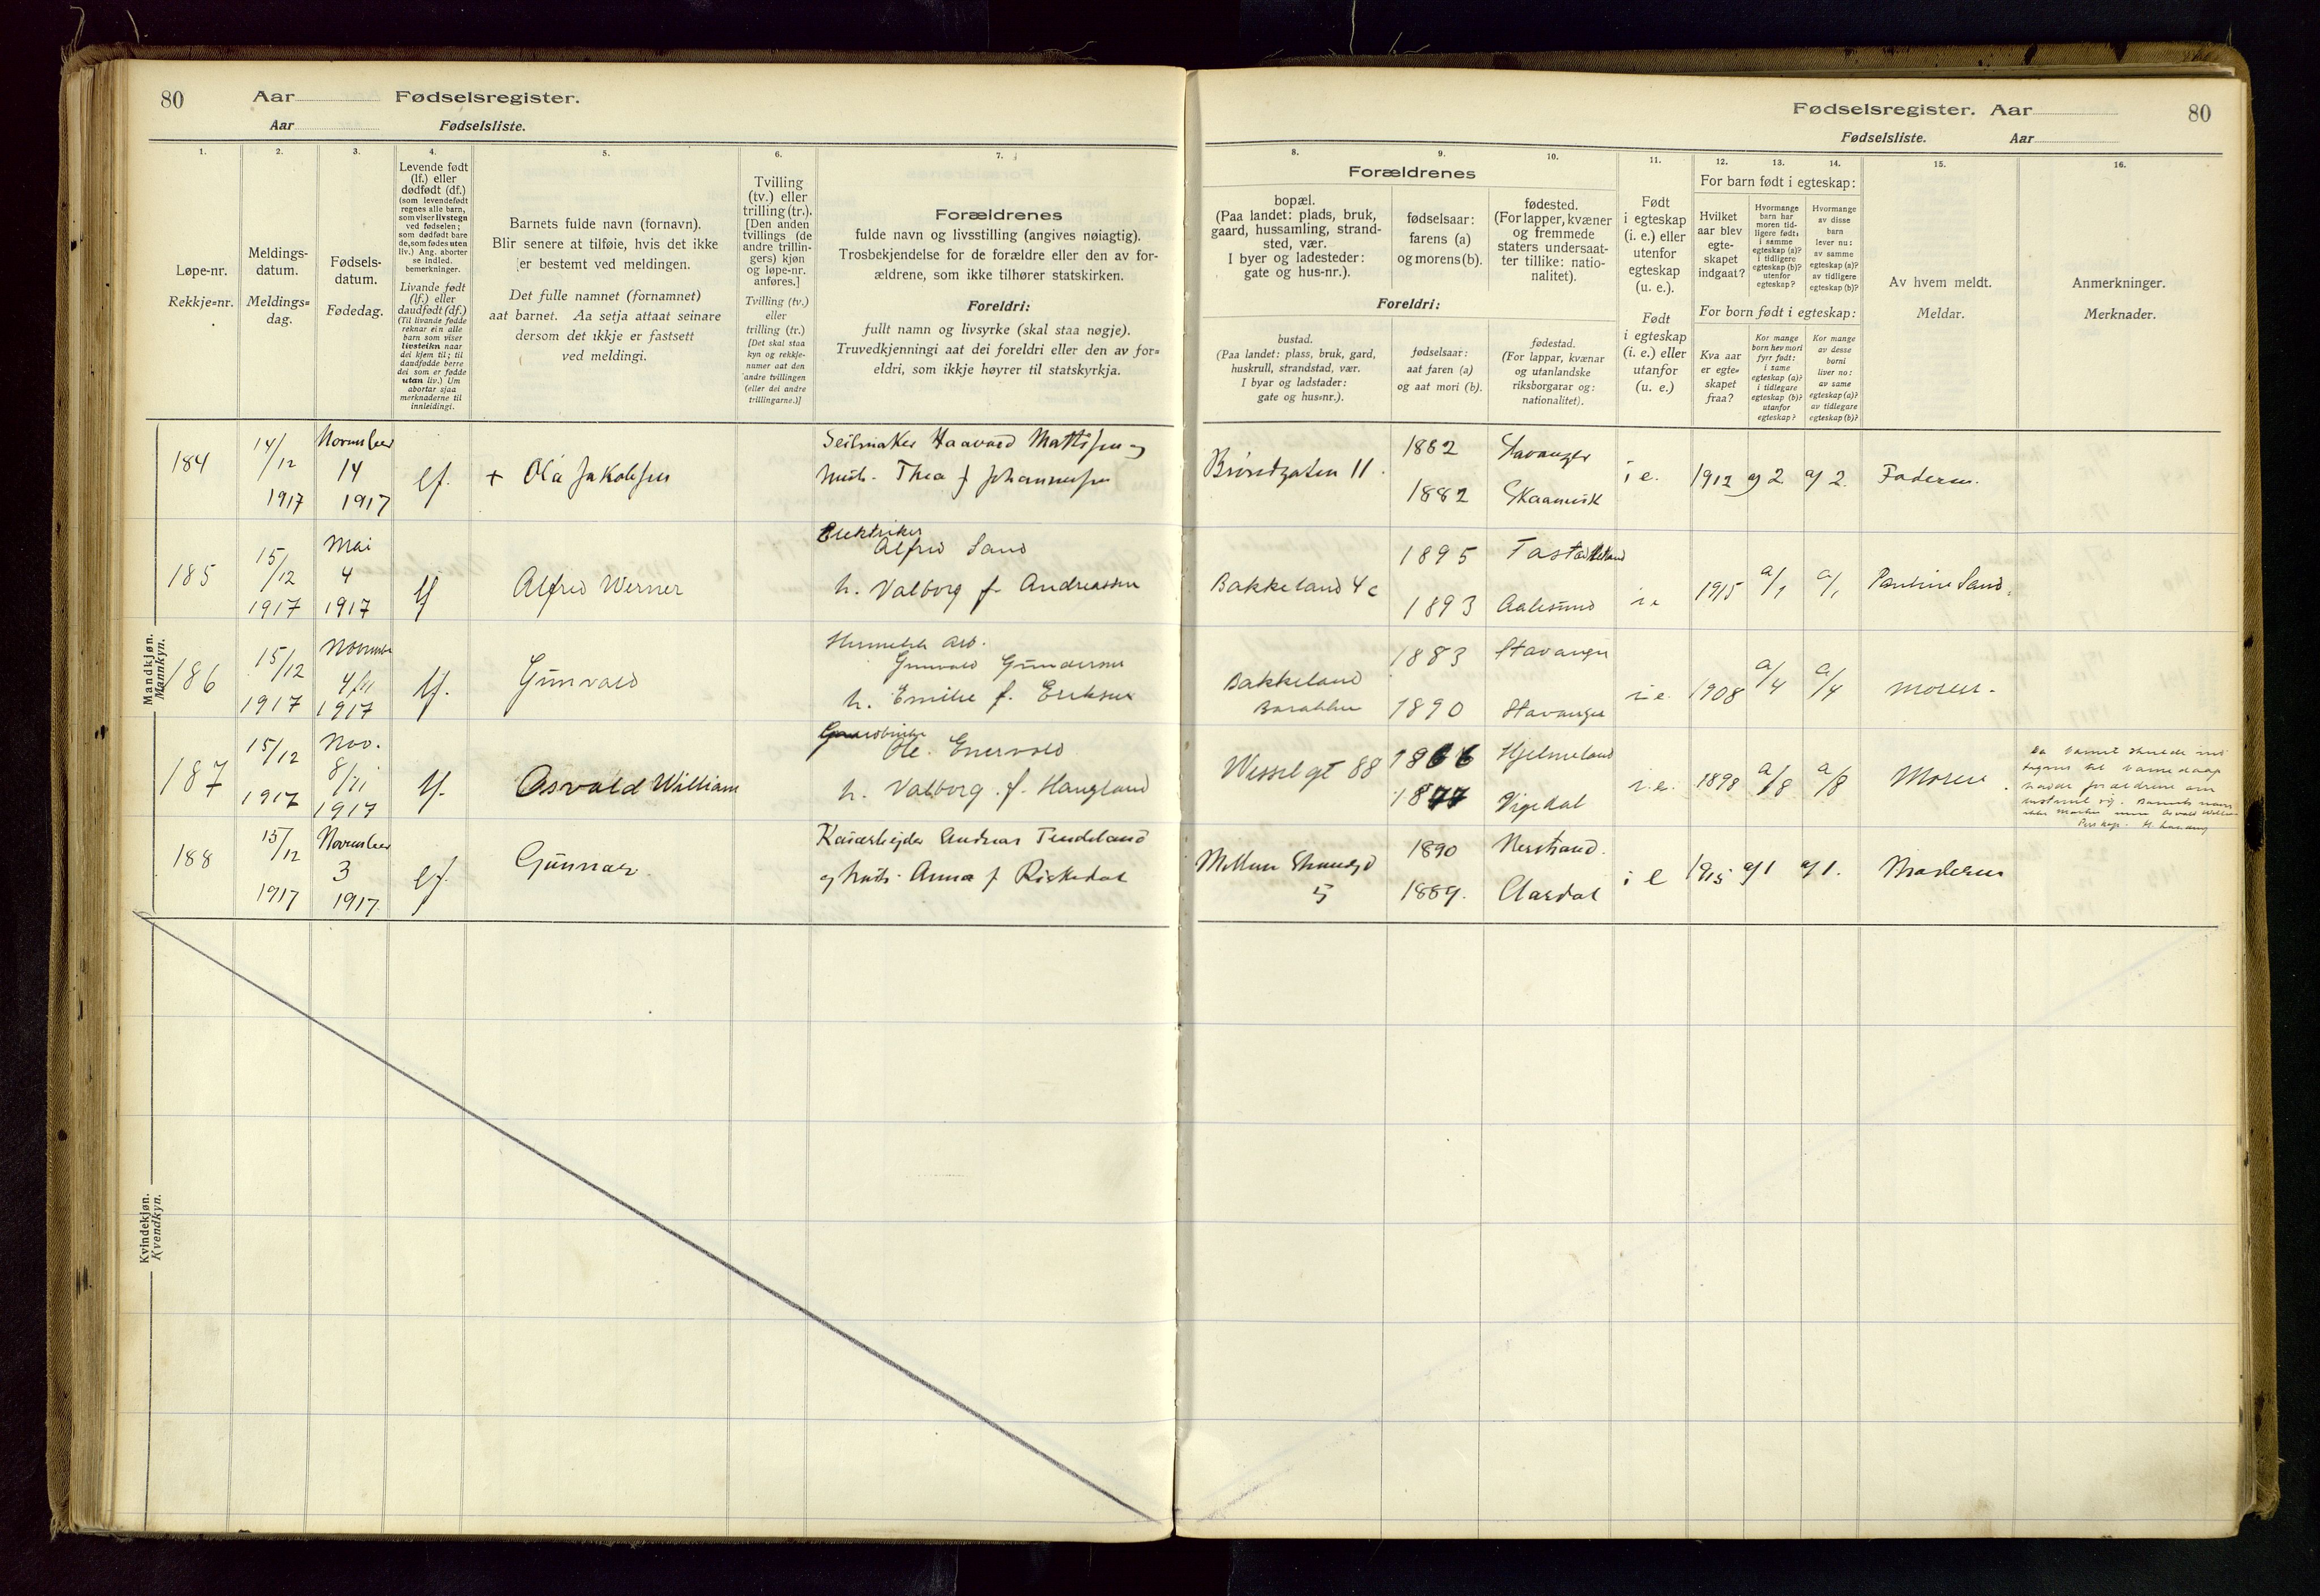 80 Aar Fødselsregister.
Aar Fødselsliste.
1. 2. 3. 4. 5. 6. 7.
Løpe-nr.
Rekkje=nr.
Meldings-
datum.
Meldings=
dag.
Fødsels-
datum.
Fødedag.
Levende født
(lf.) eller
dødfødt (df.)
(som levendefødt
regnes alle barn,
som viser livstegn
ved fødselen;
som dødfødt bare
de, som fødes uten
liv.) Ang. aborter
se indled.
bemerkninger.
Livande født
(lf.) eller
daudfødt (df.)
(Til livande fødde
reknar ein alle
barn som viser
livsteikn naar
dei kjem til; til
daudfødde berre
dei som er fødde
utan liv.) Um
abortar sjaa
merknaderne til
innleidingi.
Barnets fulde navn (fornavn).
Blir senere at tilføie, hvis det ikke
er bestemt ved meldingen.
Det fulle namnet (fornamnet)
aat barnet. Aa setja attaat seinare
dersom det ikkje er fastsett
ved meldingi.
Tvilling
(tv.) eller
trilling (tr.).
[Den anden
tvillings (de
andre trillin-
gers) kjøn
og løpe-nr.
anføres.]
Tvilling (tv.)
eller
trilling (tr.)
[Det skal staa
kyn og rekkje-
numer aat den
andre tvillingen
(eller dei andre
trillingarne.)]
Forældrenes
fulde navn og livsstilling (angives nøiagtig).
Trosbekjendelse for de forældre eller den av for-
ældrene, som ikke tilhører statskirken.
Foreldri:
fullt namn og livsyrke (skal staa nøgje).
Truvedkjenningi aat dei foreldri eller den av for=
eldri, som ikkje høyrer til statskyrkja.
Mandkjøn.
Mannkyn.
184
14/12
1917
November
14
1917
lf.
+ Ola Jakobsen
Seilmaker Haavard Mattisen og
hust. Thea f Johannesen
185
15/12
1917
Mai
4
1917
lf
Alfred Werner
Elektriker
Alfred Sand
h. Valborg f. Andreassen
186
15/12
1917
November
4/11
1917
lf.
Gunvald
Hermetik arb.
Gunvald Gundersen
h. Emilie f. Eriksen
187
15/12
1917
Nov.
8/11
1917
lf.
Osvald William
Ole Enervold
h. Valborg f. Haugland
188
15/12
1917
November
3
1917
lf.
Gunnar
Kaiarbejder Andreas Tendeland
og hust. Anna f Riskedal
Kvindekjøn.
Kvendkyn.
Fødselsregister. Aar 80
Fødselsliste. Aar
8. 9. 10. 11. 12. 13. 14. 15. 16.
Forældrenes
bopæl.
(Paa landet: plads, bruk,
gaard, hussamling, strand-
sted, vær.
I byer og ladesteder:
gate og hus-nr.).
fødselsaar:
farens (a)
og morens (b).
fødested.
(For lapper, kvæner
og fremmede
staters undersaat-
ter tillike: natio-
nalitet).
Foreldri:
bustad.
(Paa landet: plass, bruk, gard,
huskrull, strandstad, vær.
I byar og ladstader:
gate og hus=nr.).
fødselsaar:
aat faren (a)
og aat mori (b).
fødestad.
(For lappar, kvænar
og utanlandske
riksborgarar og:
nationalitet).
Født
i egteskap
(i. e.) eller
utenfor
egteskap
(u. e.).
Født
i egteskap
(i. e.) eller
utanfor
(u. e.)
For barn født i egteskap:
Hvilket
aar blev
egte-
skapet
indgaat?
Hvormange
barn har
moren tid-
ligere født:
i samme
egteskap (a)?
i tidligere
egteskap (b)?
utenfor
egteskap?
Hvormange
av disse
barn
lever nu:
av samme
egteskap (a)?
av tidligere
egteskap (b)?
For born født i egteskap:
Kva aar
er egte=
skapet
fraa?
Kor mange
born hev mori
fyrr født:
i same
egteskap (a)?
i tidlegare
egteskap (b)?
utanfor
egteskap?
Kor mange
av desse
borni
liver no:
av same
egteskap (a)?
av tidlegare
egteskap (b)?
Av hvem meldt.
Meldar.
Anmerkninger.
Merknader.
Brøndgaten 11.
1882 Stavanger
1882 Skaanevik
i e. 1912 a/ 2 a/ 2. Faderen.
Bakkeland 4 c
1895
1893 Aalesund
i e 1915 a/1 a/1 Pauline Sand.
Bakkeland
Barakken
1883 Stavanger
1890 Stavanger
i e. 1908 a/4 a/4 moren.
Wessel gt 88
1866 Hjelmeland
1877 Vigedal
i. e. 1898 a/8 a/8 Moren.
5
1890 Nerstrand.
1889. Aardal
i e 1915 a/1 a/1. Moderen